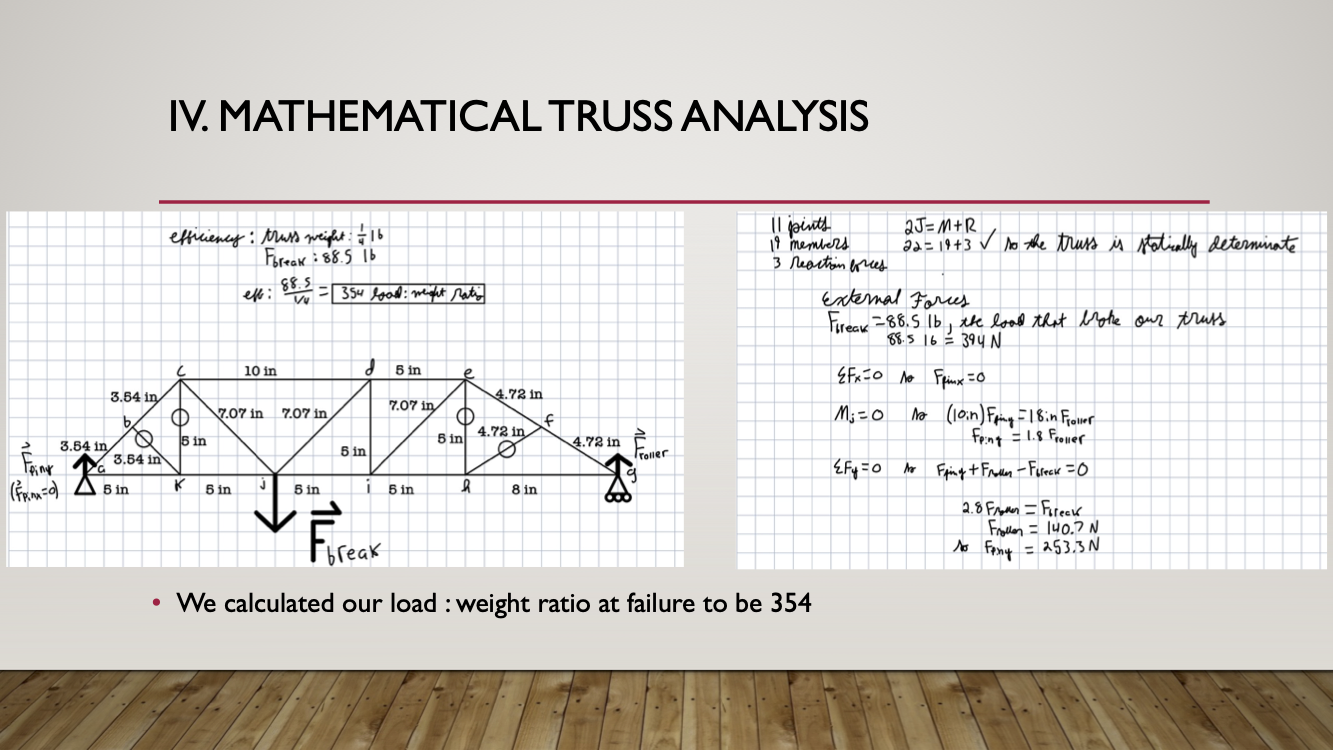 IV. MATHEMATICAL TRUSS ANALYSIS
efficiency: truss weight: 1/4 lb
Fbreak: 88.5 lb
eff: 88.5 / 1/4 = 354 load: weight ratio
c 10 in d 5 in e
3.54 in 4.72 in
b 7.07 in 7.07 in 7.07 in f
3.54 in 5 in 5 in 4.72 in 4.72 in
Fpiny a 3.54 in 5 in Froller
(Fpinx=0) 5 in k 5 in j 5 in i 5 in h 8 in g
Fbreak
11 joints 2J = M + R
19 members 22 = 19+3 ✓ so the truss is statically determinate
3 reaction forces
External Forces
Fbreak = 88.5 lb, the load that broke our truss
88.5 lb = 394 N
ΣFx=0 so Fpinx=0
Mj=0 so (10in)Fpiny = 18in Froller
Fpiny = 1.8 Froller
ΣFy=0 so Fpiny + Froller − Fbreak = 0
2.8 Froller = Fbreak
Froller = 140.7 N
so Fpiny = 253.3 N
• We calculated our load : weight ratio at failure to be 354